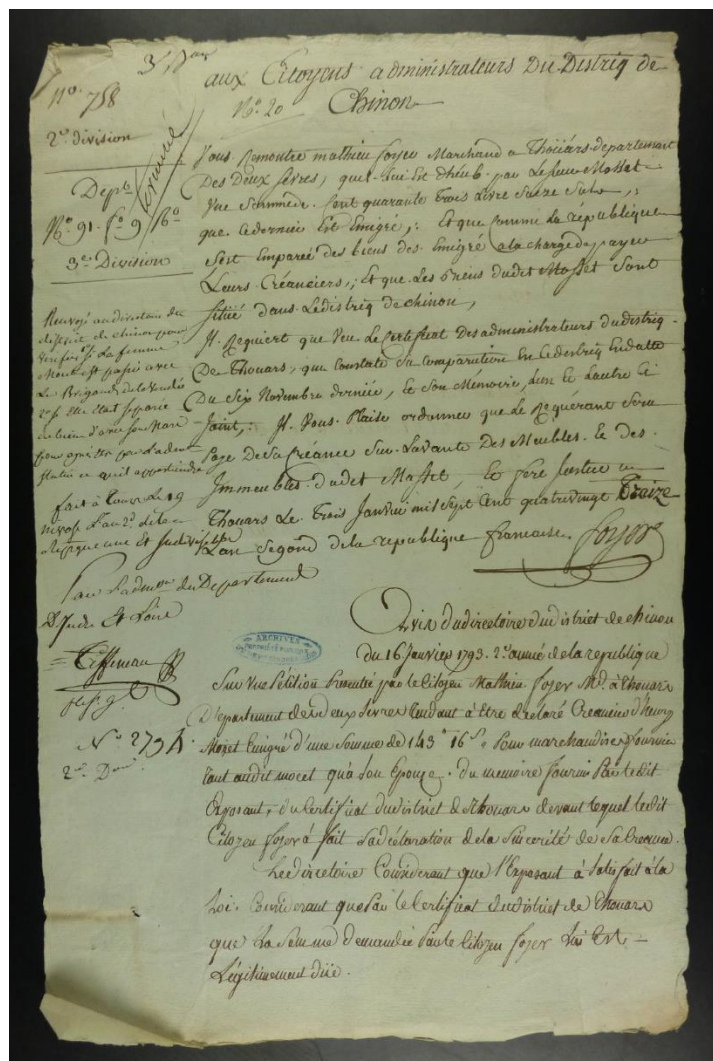 aux Citoyens administrateurs Du Distriq de
Chinon
N.º 20
N.º 758
2.e division
Dept.
N.º 91. f.º 9 R.º
3.e Division
Vous Remontre mathieu foyer Marchand a Thoüars departement
Des Deux sevres, que lui Est dheub par Le sieur Mosset
Une Somme de Cent quarante Trois Livre Saize Sols,
que Ce dernier Est Emigré, Et que comme La république
sest Emparée des biens des Emigré a la charge de payer
Leurs Créanciers, Et que Les biens dudit Mosset Sont
situé dans Le distriq de chinon,
Il Requiert que Veu Le Certificat Des administrateurs du distriq
De Thouars, que Constate Sa Comparution En Ce distriq En datte
Du Six Novembre derniée, et Son Mémoire, Lun et Lautre Ci
Joint, Il Vous Plaise ordonner que Le Requérant Sera
Paye De Sa Créance Sur La Vante Des Meubles et des
Immeubles dudet Mosset, et fere Justice
Thouars Le Trois Janvier mil Sept Cent quatre vingt Traize
Lan Segond de la republique francaise. foyer
Renvoyé au directoire du
district de chinon pour
La femme
Mosset passée avec
Les Brigands de la Vendée
Etat separée
de biens d'avec son Mari
pour par Le dept
Statué ce quil appartiendra
fait à Tours Le 19
nivose L'an 2.e de la
Republique une et Indivisible
Les adm.rs du Departement
D'Indre et Loire
N.º 279
ARCHIVES
Avis du directoire du district de chinon
du 16 Janvier 1793. 2.e année de la republique
Sur une Pétition Presentée par le Citoyen Mathieu foyer M.d à Thouars
Departement des deux Sevres tendant à Être declaré Creancier d'henry
Mosset Emigré d'une Somme de 143 16 s Pour marchandises fournies
tant audit mocet qu'à Son Epouse. du memoire fourni Par ledit
Exposant, du Certificat du district de Thouars devant lequel ledit
Citoyen foyer à fait Sa déclaration de la Sincerité de Sa Creance.
Le directoire Considerant que l'Exposant à Satisfait à la
Loi. Considerant que Par le Certificat du district de Thouars
que la Somme demandée Par le Citoyen foyer Lui Est
Légitimement düe.